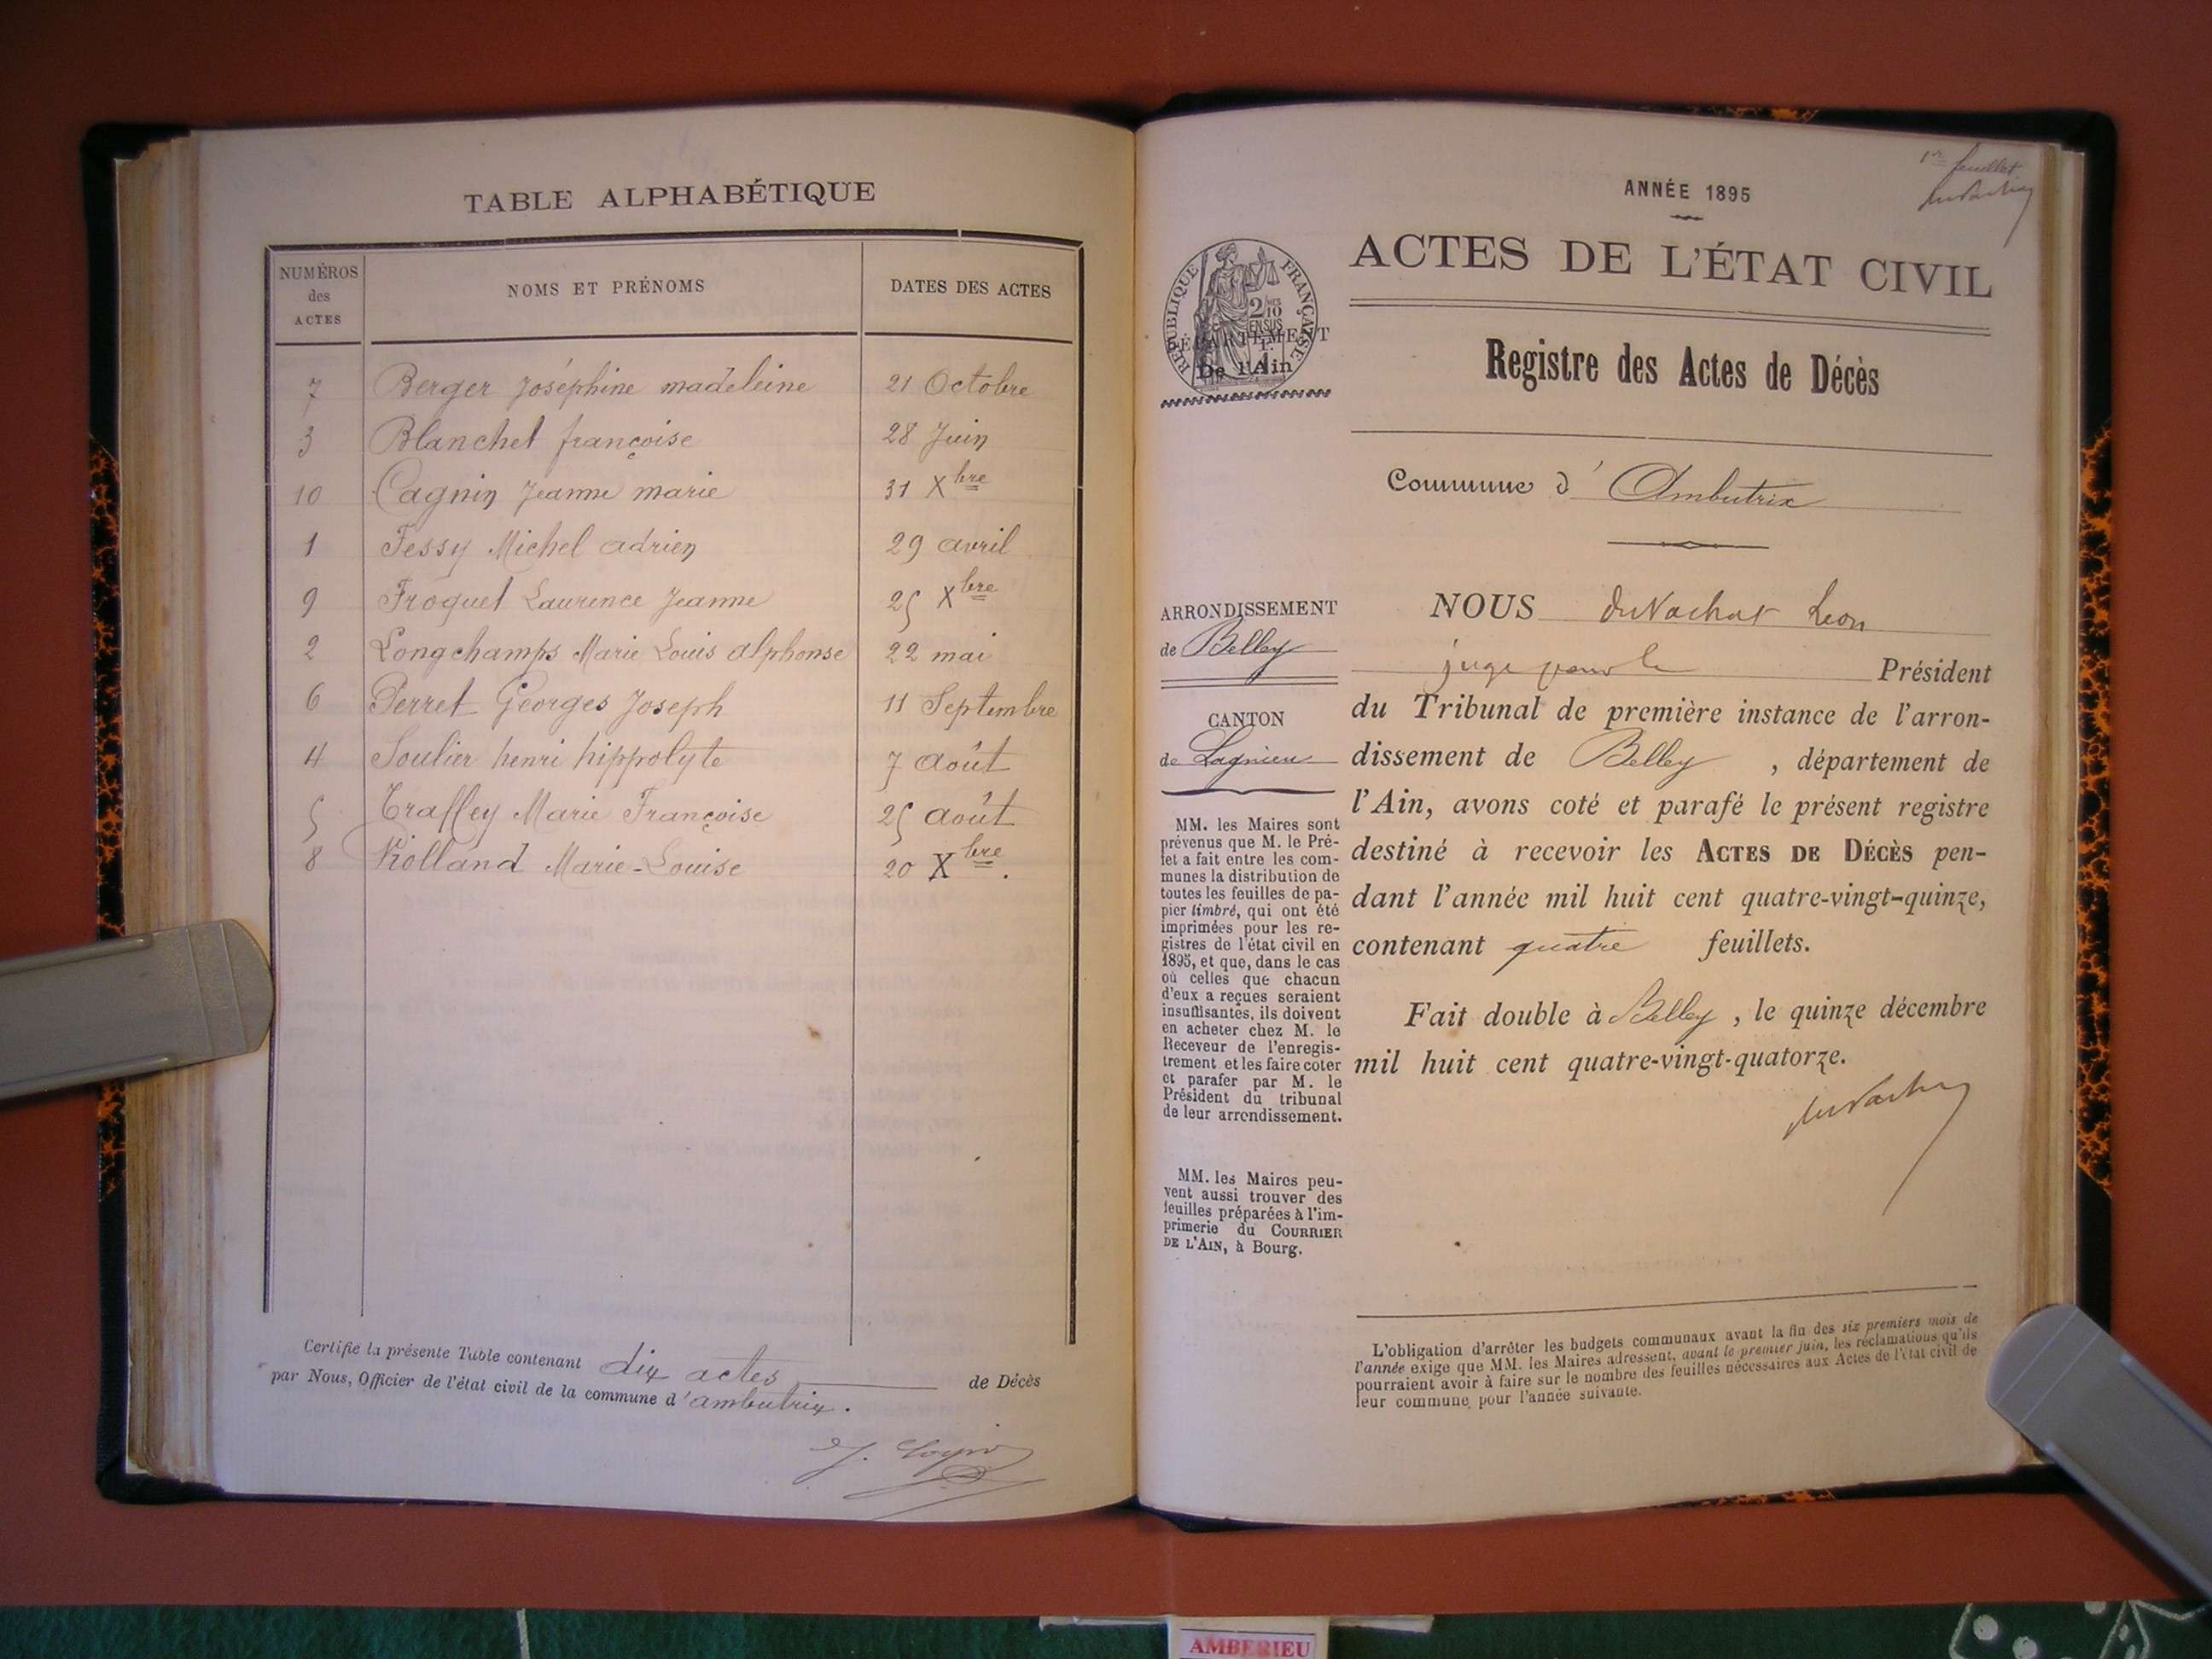 TABLE ALPHABÉTIQUE
NUMÉROS des ACTES NOMS ET PRÉNOMS DATES DES ACTES
7 Berger Joséphine madeleine 21 Octobre
3 Blanchet françoise 28 Juin
10 Cagnin Jeanne marie 31 Xbre
1 Fessy Michel adrien 29 avril
9 Froquet Laurence Jeanne 25 Xbre
2 Longchamps Marie Louis alphonse 22 mai
6 Perret Georges Joseph 11 Septembre
4 Soulier henri hippolyte 7 août
5 Traffey Marie Françoise 25 août
8 Rolland Marie-Louise 20 Xbre.
Certifie la présente Table contenant dix actes de Décès
par Nous, Officier de l'état civil de la commune d'ambutrix.
1er feuillet
ANNÉE 1895
ACTES DE L'ÉTAT CIVIL
RÉPUBLIQUE FRANÇAISE
2/10 EN SUS
DÉPARTEMENT
De l'Ain
Registre des Actes de Décès
Commune d'Ambutrix
ARRONDISSEMENT
de Belley
CANTON
de Lagnieu
MM. les Maires sont
prévenus que M. le Pré-
fet a fait entre les com-
munes la distribution de
toutes les feuilles de pa-
pier timbré, qui ont été
imprimées pour les re-
gistres de l'état civil en
1895, et que, dans le cas
où celles que chacun
d'eux a reçues seraient
insuffisantes, ils doivent
en acheter chez M. le
Receveur de l'enregis-
trement et les faire coter
et parafer par M. le
Président du tribunal
de leur arrondissement.
MM. les Maires peu-
vent aussi trouver des
feuilles préparées à l'im-
primerie du COURRIER
DE L'AIN, à Bourg.
NOUS duVachat Leon
juge pour le Président
du Tribunal de première instance de l'arron-
dissement de Belley, département de
l'Ain, avons coté et parafé le présent registre
destiné à recevoir les ACTES DE DÉCÈS pen-
dant l'année mil huit cent quatre-vingt-quinze,
contenant quatre feuillets.
Fait double à Belley, le quinze décembre
mil huit cent quatre-vingt-quatorze.
L'obligation d'arrêter les budgets communaux avant la fin des six premiers mois de
l'année exige que MM. les Maires adressent, avant le premier juin, les réclamations qu'ils
pourraient avoir à faire sur le nombre des feuilles nécessaires aux Actes de l'état civil de
leur commune pour l'année suivante.
AMBERIEU